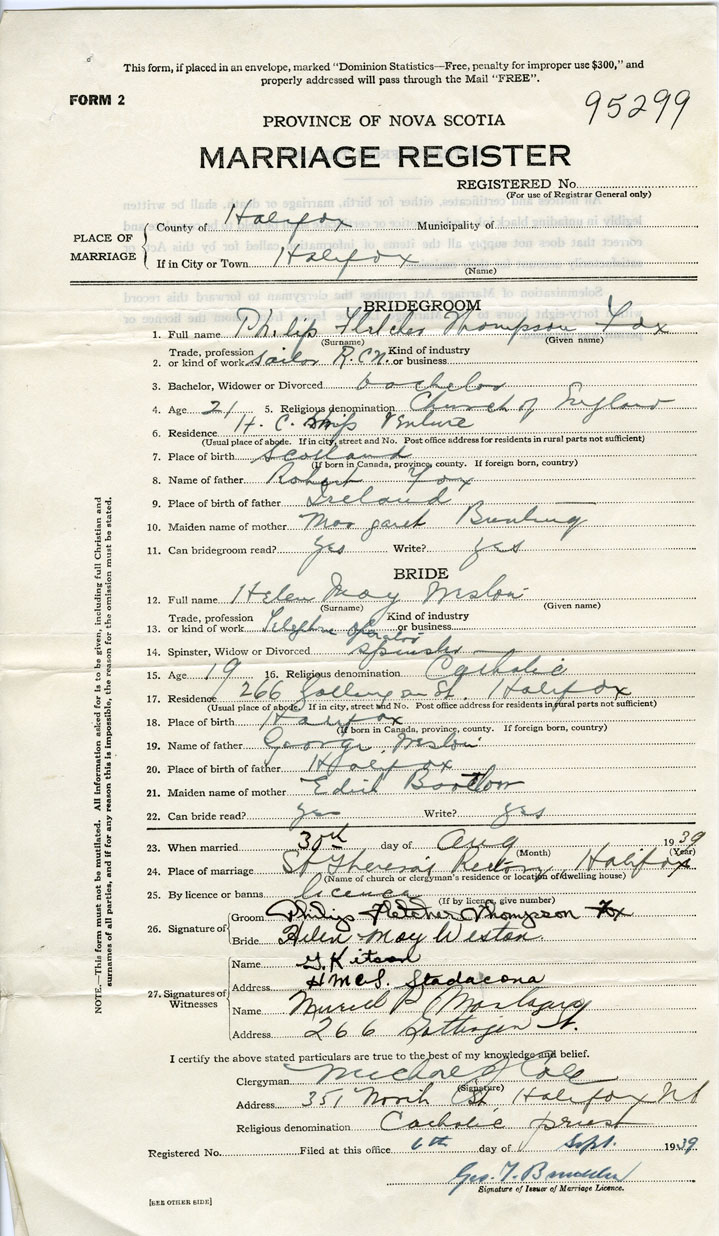 This form, if placed in an envelope, marked "Dominion Statistics—Free, penalty for improper use $300," and
properly addressed will pass through the Mail "FREE".
FORM 2
95299
PROVINCE OF NOVA SCOTIA
MARRIAGE REGISTER
REGISTERED No.
(For use of Registrar General only)
PLACE OF MARRIAGE
County of Halifax Municipality of
If in City or Town Halifax
(Name)
BRIDEGROOM
1. Full name Philip Fletcher Thompson Fox
(Surname) (Given name)
2. Trade, profession or kind of work Sailor R.C.N. Kind of industry or business
3. Bachelor, Widower or Divorced bachelor
4. Age 21 5. Religious denomination Church of England
6. Residence H. C. Ships Venture
(Usual place of abode. If in city, street and No. Post office address for residents in rural parts not sufficient)
7. Place of birth Scotland
(If born in Canada, province, county. If foreign born, country)
8. Name of father Robert Fox
9. Place of birth of father Ireland
10. Maiden name of mother Margaret
11. Can bridegroom read? yes Write? yes
BRIDE
12. Full name Helen May Weston
(Surname) (Given name)
13. Trade, profession or kind of work Telephone operator Kind of industry or business
14. Spinster, Widow or Divorced spinster
15. Age 19 16. Religious denomination Catholic
17. Residence 266 Gottingen St. Halifax
(Usual place of abode. If in city, street and No. Post office address for residents in rural parts not sufficient)
18. Place of birth Halifax
(If born in Canada, province, county. If foreign born, country)
19. Name of father George Weston
20. Place of birth of father Halifax
21. Maiden name of mother Edith
22. Can bride read? yes Write? yes
23. When married 30th day of Aug 1939
(Month) (Year)
24. Place of marriage St Theresa's Rectory, Halifax
(Name of church or clergyman's residence or location of dwelling house)
25. By licence or banns licence
(If by licence, give number)
26. Signature of
Groom Philip Fletcher Thompson Fox
Bride Helen May Weston
27. Signatures of Witnesses
Name G. Kitson
Address H.M.C.S. Stadacona
Name Muriel P
Address 266 Gottingen St.
I certify the above stated particulars are true to the best of my knowledge and belief.
Clergyman Michael J Cole
(Signature)
Address 351 North St Halifax NS
Religious denomination Catholic priest
Registered No. Filed at this office 6th day of Sept. 1939
Geo. T.
Signature of Issuer of Marriage Licence.
[SEE OTHER SIDE]
NOTE.—This form must not be mutilated. All information asked for is to be given, including full Christian and
surnames of all parties, and if for any reason this is impossible, the reason for the omission must be stated.